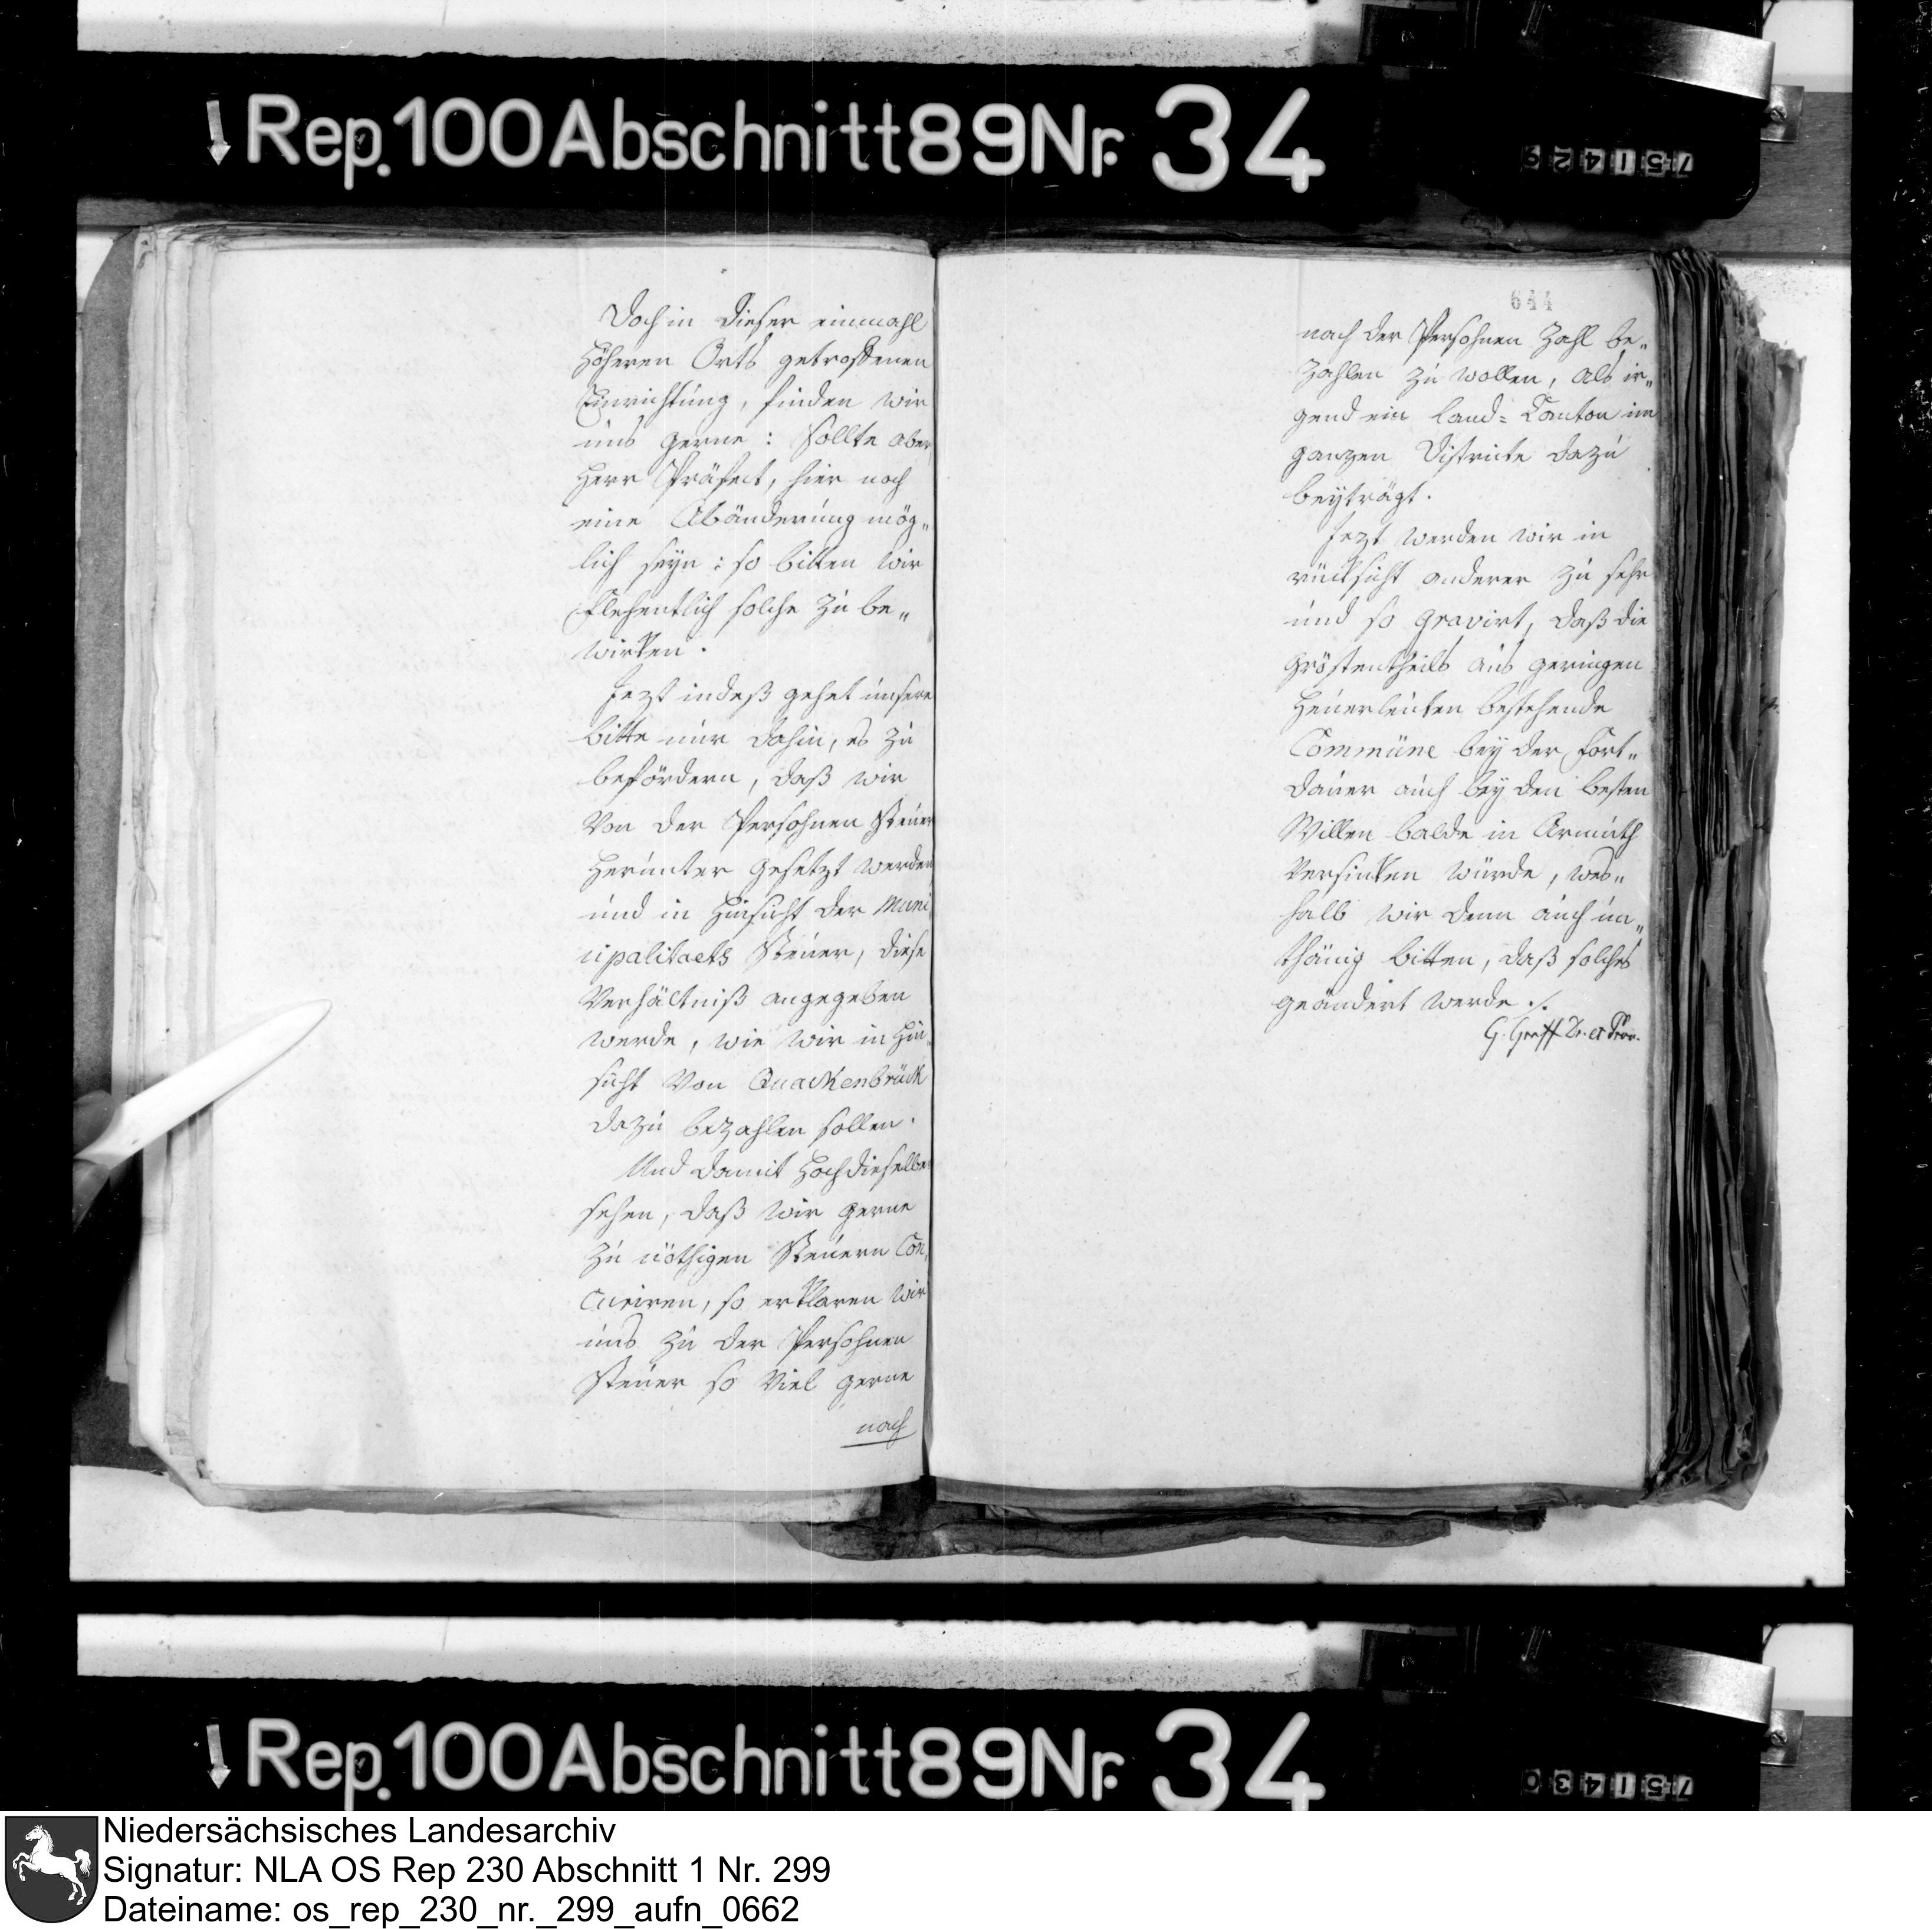 Rep. 100 Abschnitt 89 Nr. 34
751429
Doch in dieser einmahl
höheren Orts getroffenen
Einrichtung, finden wir
uns gerne: sollte aber
Herr Präfect, hier noch
eine Abänderung mög„
lich seyn: so bitten wir
flehentlich solche zu be„
wirken.
Jezt indeß gehet unsere
bitte nur dahin, es zu
befördern, daß wir
von der Persohnen Steuer
herunter gesetzt werden
und in Hinsicht der Muni
cipalitaets Steuer, diese
Verhältniß angegeben
werde, wie wir in Hin„
sicht von Quackenbrück
dazu bezahlen sollen.
Und damit Hochdieselbe
sehen, daß wir gerne
zu nöthigen Steuern Con„
curiren, so erklaren wir
uns zu der Persohnen
Steuer so viel gerne
nach
644
nach der Persohnen Zahl be„
zahlen zu wollen, als ir„
gend ein land= Canton im
ganzen Districte dazu
beyträgt.
Jezt werden wir in
rücksicht anderer zu sehr
und so gravirt, daß die
gröstentheils aus geringen
Heuerleuten bestehende
Commüne bey der Fort„
dauer auch bey den besten
Willen balde in Armuth
versinken würde, wes„
halb wir denn auch un„
thänig bitten, daß solches
geändert werde ./.
G. Graff Dr. et Proc.
Rep. 100 Abschnitt 89 Nr. 34
751430
Niedersächsisches Landesarchiv
Signatur: NLA OS Rep 230 Abschnitt 1 Nr. 299
Dateiname: os_rep_230_nr._299_aufn_0662